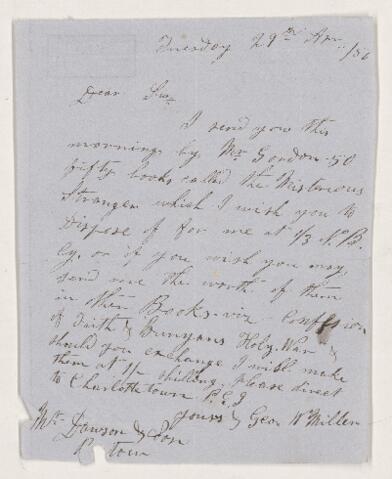 Tuesday 29th Apr /56
Dear Sir
I send you this
morning by Mr Gordon - 50
fifty books called the Misterious
Stranger which I wish you to
Dispose of for me at 1/3 N.B.
Cy. or if you wish you may
send me the worth of them
in other Books - viz - Confession
of Faith & Bunyans Holy War &
should you exchange I will make
them at 1/- shilling. Please direct
to Charlottetown P.E.I
yours & Geor W Miller
Mr Dawson & Son
P. town